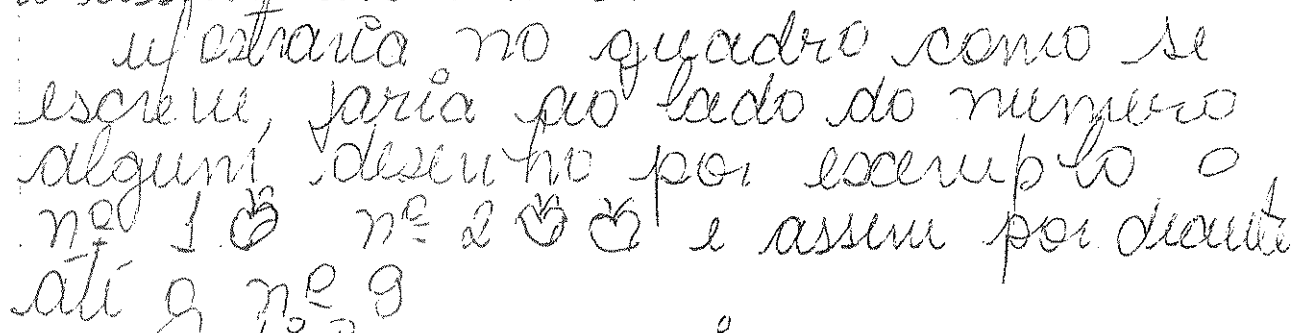 Mostraria no quadro como se
escreve, faria ao lado do numero
algum desenho por exemplo o
nº 1 nº 2 e assim por diante
até o nº 9